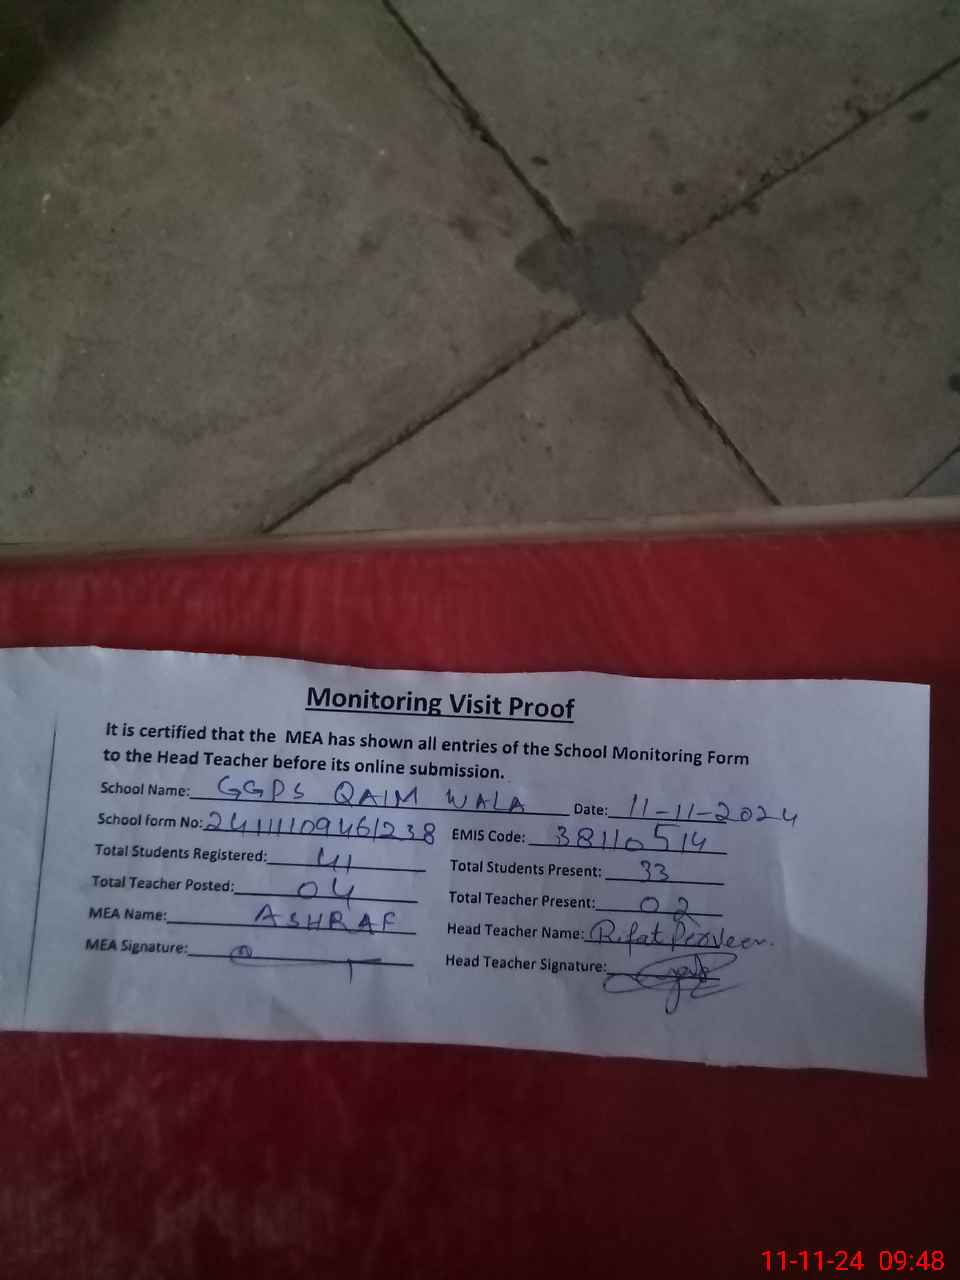 Monitoring Visit Proof
It is certified that the MEA has shown all entries of the School Monitoring Form
to the Head Teacher before its online submission.
School Name: GGPS QAIM WALA Date: 11-11-2024
School form No: 24111109461238 EMIS Code: 38110514
Total Students Registered: 41 Total Students Present: 33
Total Teacher Posted: 04 Total Teacher Present: 02
MEA Name: ASHRAF Head Teacher Name: Rifat Perveen.
MEA Signature: Head Teacher Signature:
11-11-24 09:48